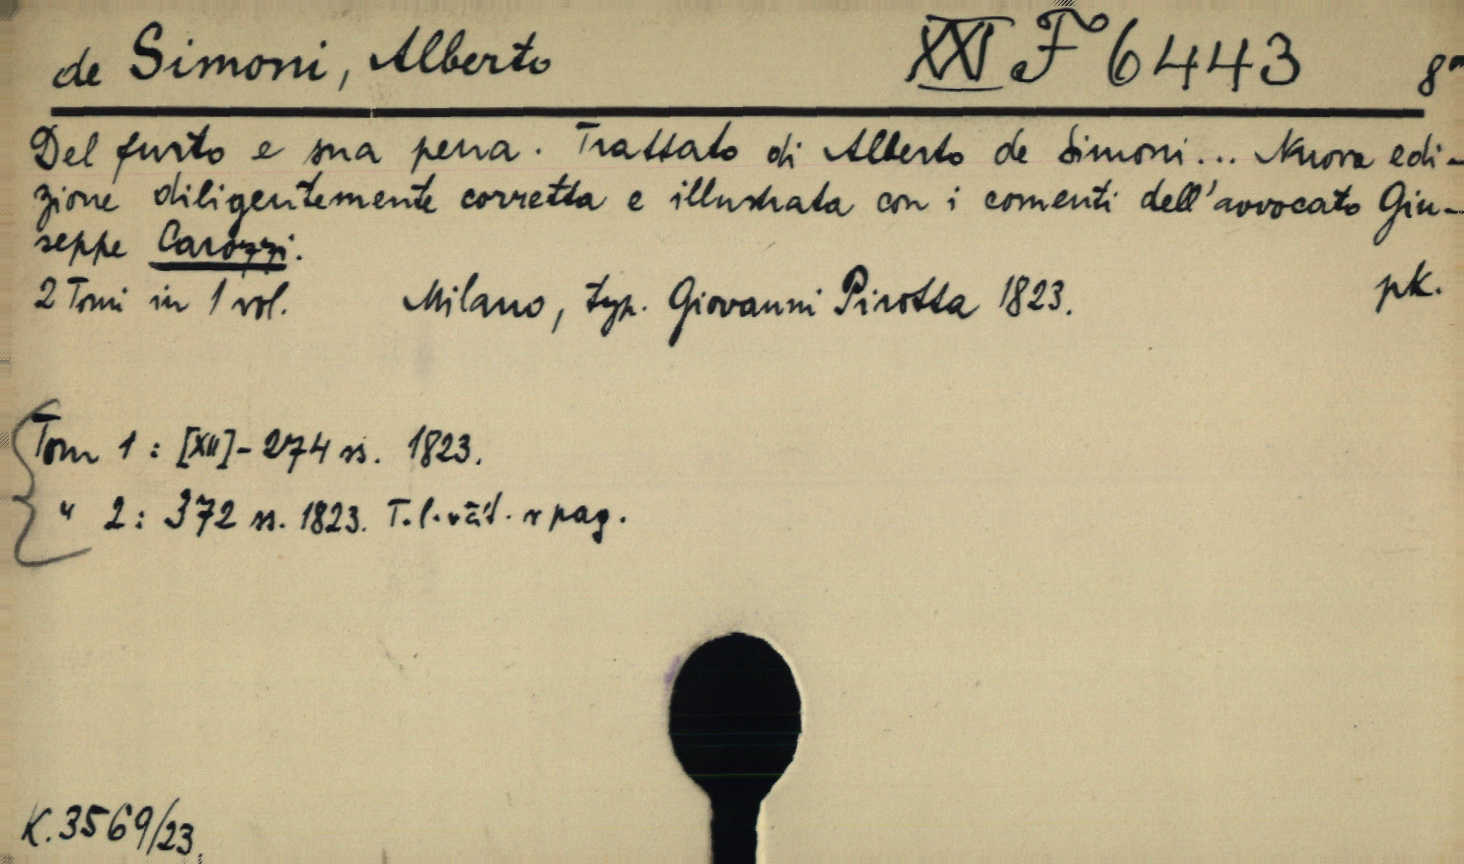 de Simoni, Alberto XXI F 6443 8°
Del furto e sua pena. Trattato di Alberto de Simoni... Nuova edi-
zione diligentemente corretta e illustrata con i comenti dell'avvocato Giu-
seppe Carozzi.
2 Tomi in 1 vol. Milano, typ. Giovanni Pirotta 1823. pk.
Tom 1: [XII]-274 ss. 1823.
" 2: 372 ss. 1823. T. l. pag.
K. 3569/23.